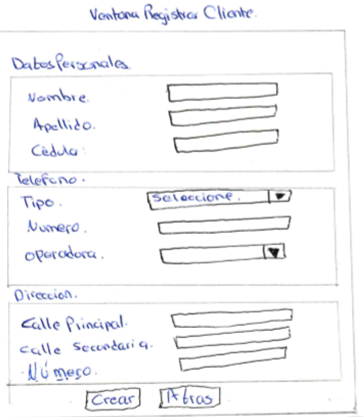 Ventana Registrar Cliente.
Datos Personales
Nombre.
Apellido.
Cédula:
Telefono.
Tipo. Seleccione.
Numero.
operadora.
Direccion.
Calle Principal.
calle Secundaria.
Número.
Crear Atras